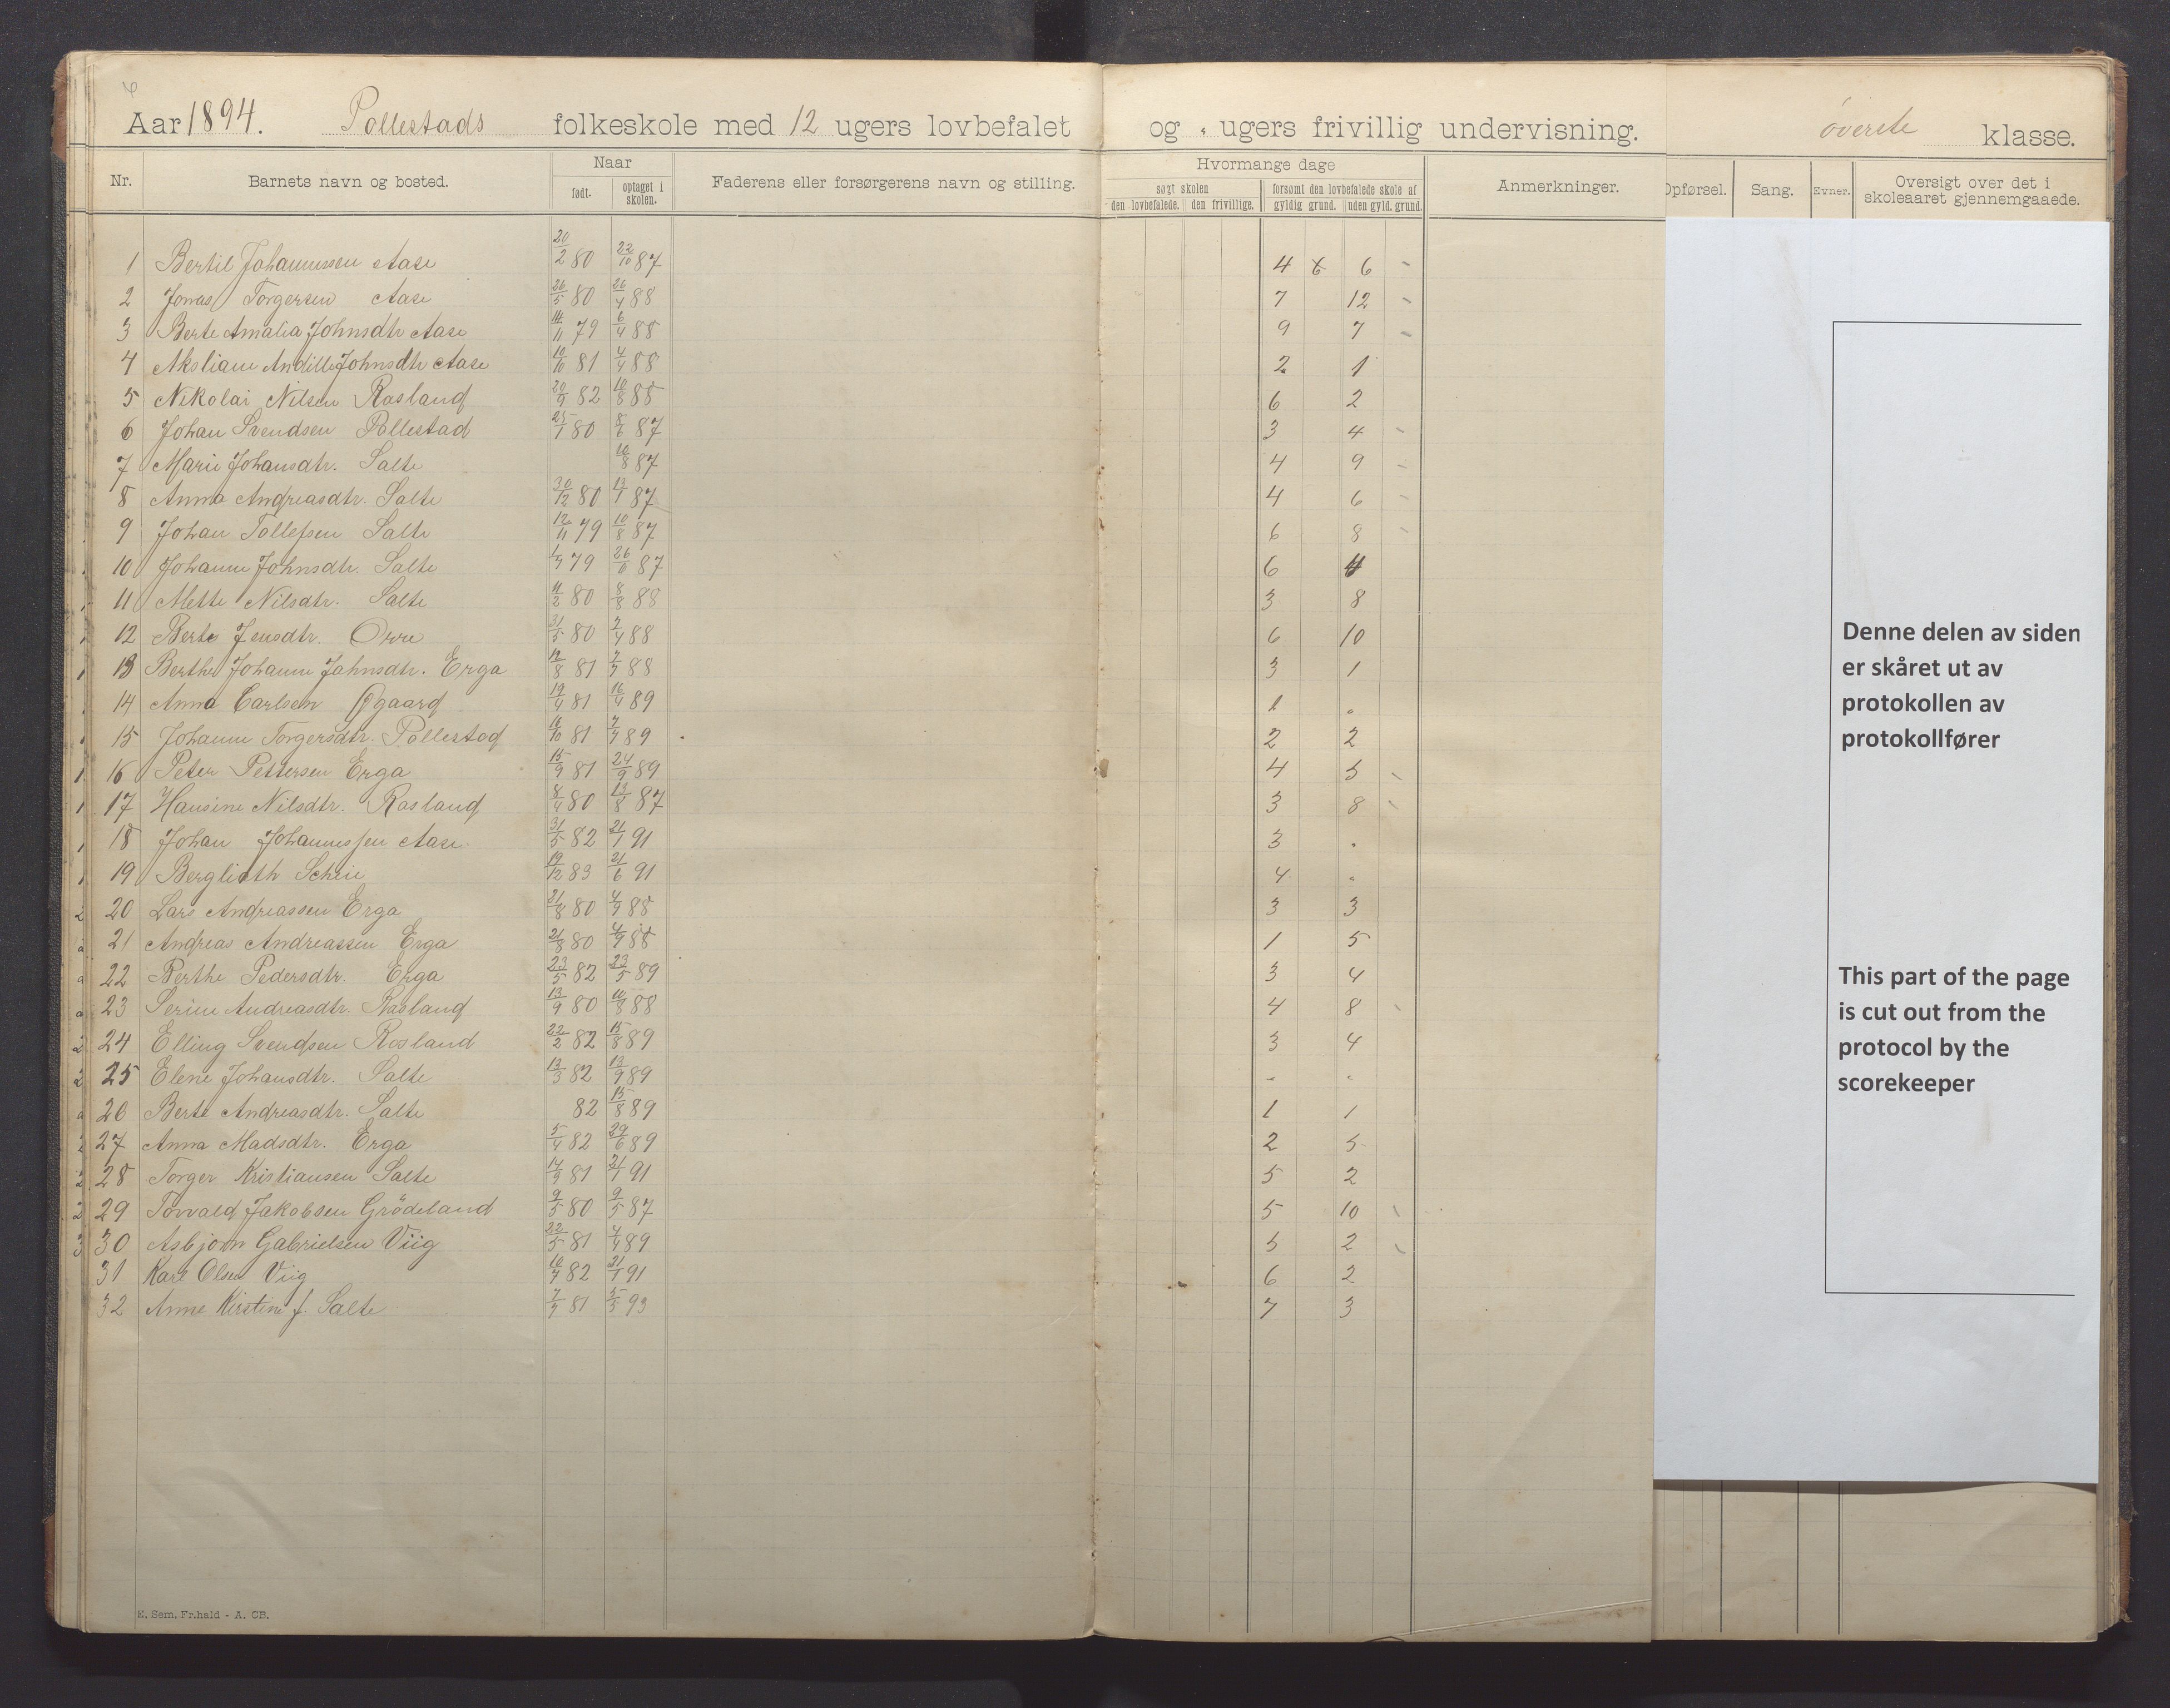 Aar 1894. Pollestads folkeskole med 12 ugers lovbefalet og " ugers frivillig undervisning. överste klasse.
Nr. Barnets navn og bosted. Naar født. optaget i skolen. Faderens eller forsørgerens navn og stilling. Hvormange dage søgt skolen den lovbefalede. den frivillige. forsømt den lovbefalede skole af gyldig grund. uden gyld. grund. Anmerkninger. Opførsel. Sang. Evner. Oversigt over det i skoleaaret gjennemgaaede.
1 Bertil Johannessen Aase 20/2 80 22/10 87 4 6
2 Jonas Torgersen Aase 26/5 80 26/4 88 7 12
3 Berte Amalia Johnsdtr Aase 14/11 79 6/4 88 9 7
4 Johnsdtr Aase 10/10 81 4/4 88 2 1
5 Nikolai Nilsen Rosland 20/9 82 10/8 88 6 2
6 Johan Svendsen Pollestad 25/1 80 8/6 87 3 4
7 Marie Johansdtr. Salte 10/8 87 4 9
8 Anna Andreasdtr. Salte 30/12 80 13/1 87 4 6
9 Johan Tollefsen Salte 12/11 79 10/8 87 6 8
10 Johanne Johnsdtr. Salte 1/9 79 26/6 87 6 4
11 Mette Nilsdtr. Salte 11/2 80 8/8 88 3 8
12 Berte Jensdtr. Orre 31/5 80 2/4 88 6 10
13 Berthe Johanne Johnsdtr. Erga 12/8 81 2/7 88 3 1
14 Anna Carlsen Øgaard 19/4 81 16/4 89 1 .
15 Johanne Torgersdtr. Pollestad 16/10 81 89 2 2
16 Peter Pettersen Erga 15/9 81 24/9 89 4 5
17 Hansine Nilsdtr. Rosland 8/4 80 13/8 87 3 8
18 Johan Johannessen Aase. 31/5 82 21/1 91 3 .
19 Berglioth Scheie 19/12 83 21/6 91 4 .
20 Lars Andreassen Erga 21/8 80 4/9 88 3 3
21 Andreas Andreassen Erga 21/8 80 4/9 88 1 5
22 Berthe Pedersdtr. Erga 23/5 82 23/5 89 3 4
23 Serine Andreasdtr. Rosland 13/9 80 10/8 88 4 8
24 Elling Svendsen Rosland 22/2 82 15/8 89 3 4
25 Elene Johansdtr. Salte 13/3 82 13/9 89 . .
26 Berte Andreasdtr. Salte 82 15/8 89 1 1
27 Anna Madsdtr. Erga 5/4 82 29/6 89 2 5
28 Torger Kristiansen Salte 14/9 81 21/1 91 5 2
29 Torvald Jakobsen Grödeland 9/5 80 9/5 87 5 10
30 Asbjorn Gabrielsen Viig 22/5 81 4/4 89 5 2
31 Karl Olsen Viig 10/7 82 21/1 91 6 2
32 Anne Kirstine J. Salte 81 5/5 93 7 3
Denne delen av siden
er skåret ut av
protokollen av
protokollfører
This part of the page
is cut out from the
protocol by the
scorekeeper
E. Sem, Fr.hald - A. CB.